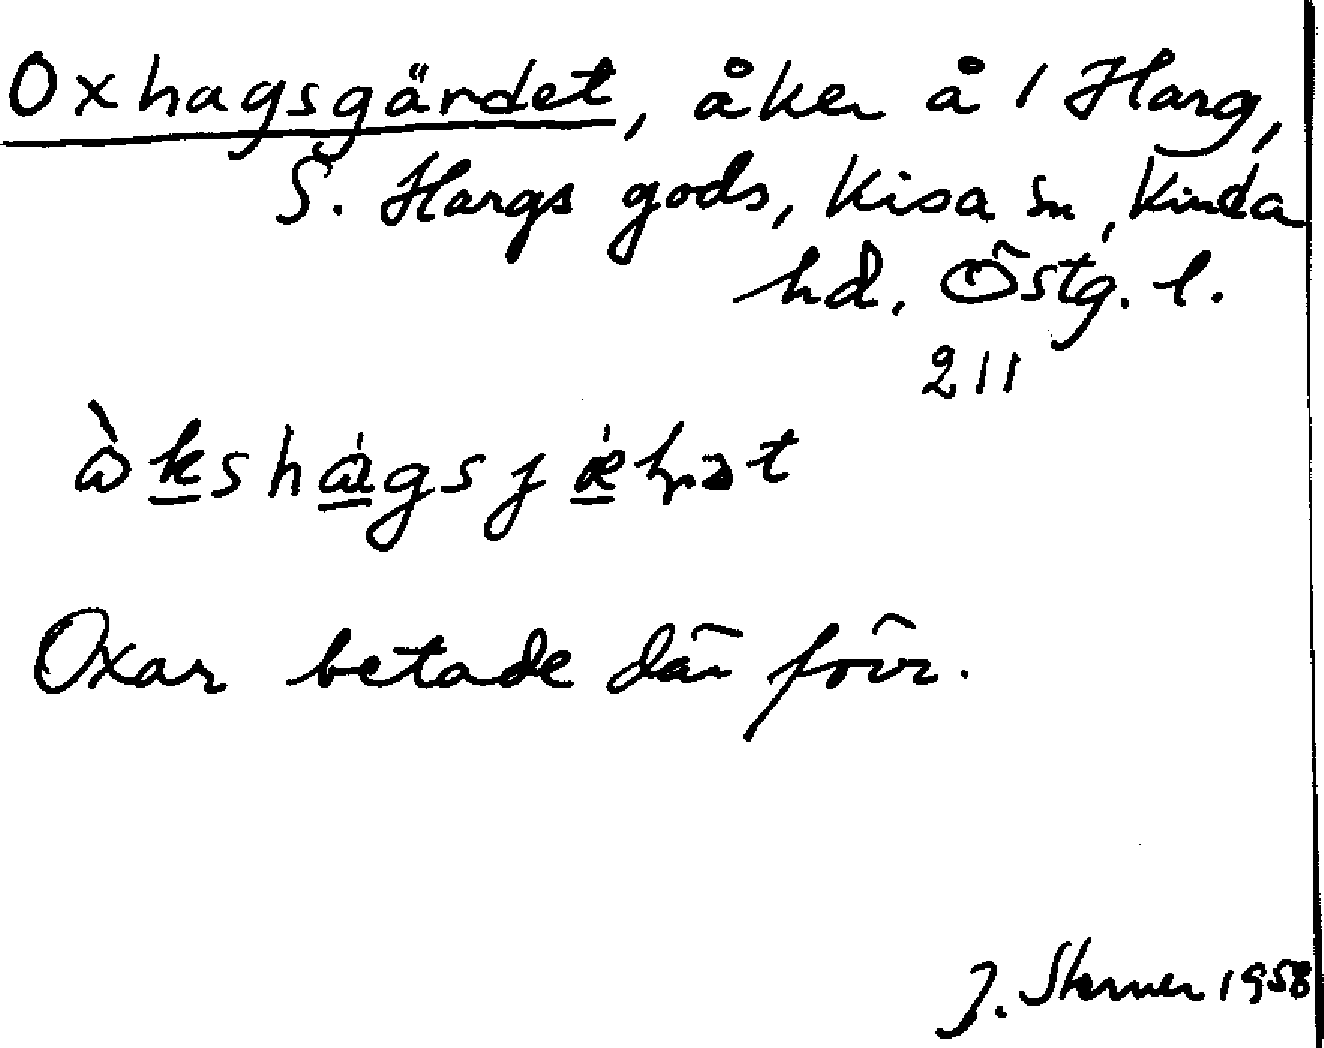 Oxhagsgärdet, åker å 1 Harg,
S. Hargs gods, Kisa sn, Kinda
hd. Östg. l.
211
Oxar betade där förr.
J. Sterner 1958